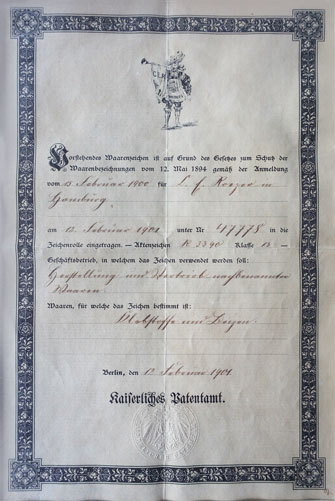 Vorstehendes Waarenzeichen ist auf Grund des Gesetzes zum Schutz der
Waarenbezeichnungen vom 12. Mai 1894 gemäß der Anmeldung
vom 13. Februar 1900 für L. f. in
Hamburg
am 12. Februar 1901 unter Nr 47778 in die
Zeichenrolle eingetragen. – Aktenzeichen K. Klasse 13. –
Geschäftsbetrieb, in welchem das Zeichen verwendet werden soll:
Herstellung und Vertrieb nachbenannter
Waaren.
Waaren, für welche das Zeichen bestimmt ist:
Klebstoffe und
Berlin, den 12. Februar 1901.
Kaiserliches Patentamt.